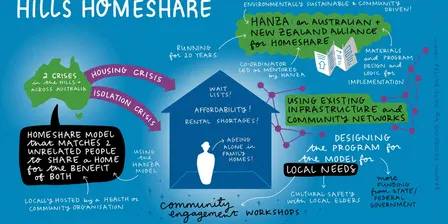 HILLS HOMESHARE
ENVIRONMENTALLY SUSTAINABLE & COMMUNITY
DRIVEN!
HANZA: an AUSTRALIAN +
NEW ZEALAND ALLIANCE
for HOMESHARE
RUNNING
FOR 20 YEARS
CO-ORDINATOR
LED or MENTORED
by HANZA
MATERIALS
and PROGRAM
DESIGN and
LOGIC for
IMPLEMENTATION
2 CRISES
in the HILLS +
ACROSS AUSTRALIA
HOUSING CRISIS
ISOLATION CRISIS
WAIT
LISTS!
AFFORDABILITY!
RENTAL SHORTAGES!
AGEING
ALONE in
FAMILY
HOMES!
HOMESHARE MODEL
that MATCHES 2
UNRELATED PEOPLE
to SHARE a HOME
for the BENEFIT
OF BOTH
USING
the HANZA
MODEL
LOCALLY HOSTED by a HEALTH or
COMMUNITY ORGANISATION
USING EXISTING
INFRASTRUCTURE and
COMMUNITY NETWORKS
DESIGNING
the PROGRAM
the MODEL for
LOCAL NEEDS
CULTURAL SAFETY
WITH LOCAL ELDERS
more
FUNDING
from STATE/
FEDERAL
GOVERNMENT
community
engagement WORKSHOPS